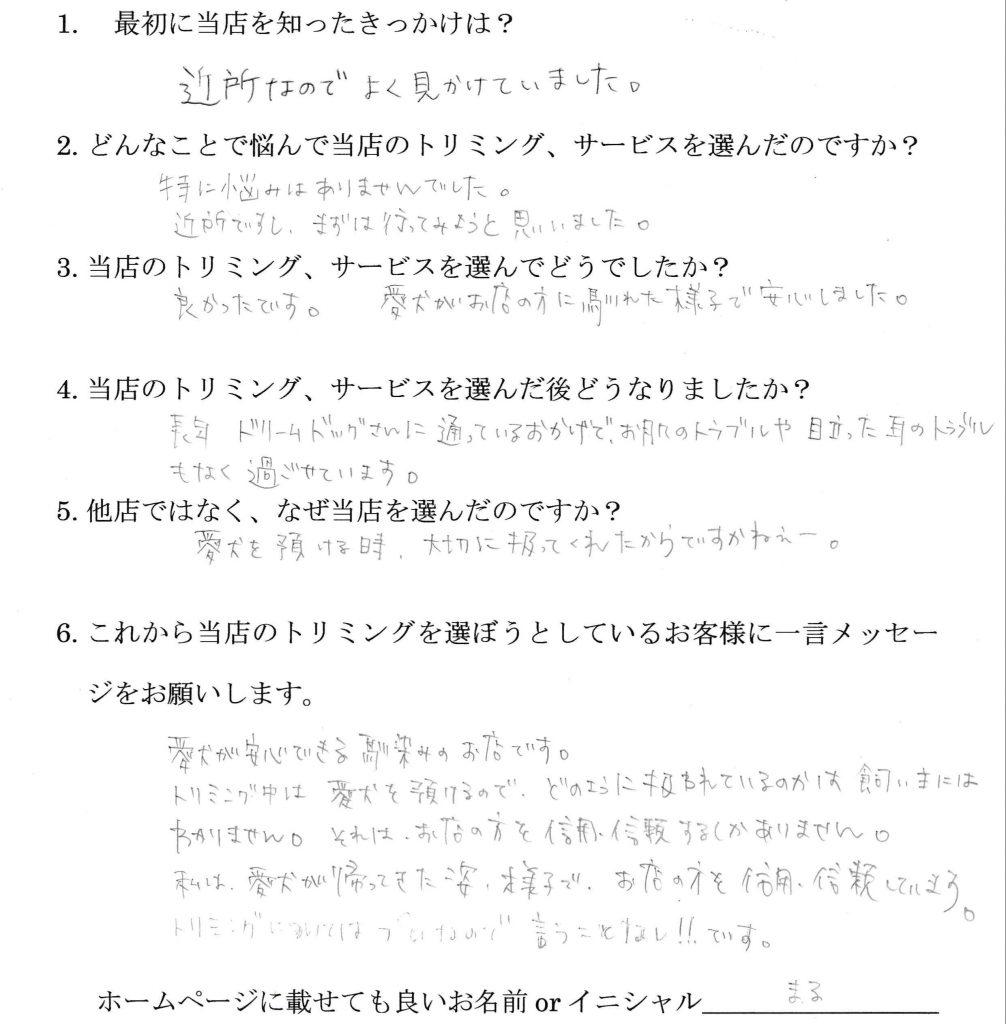 1. 最初に当店を知ったきっかけは？
近所なのでよく見かけていました。
2. どんなことで悩んで当店のトリミング、サービスを選んだのですか？
特に悩みはありませんでした。
近所ですし、まずは行ってみようと思いいました。
3. 当店のトリミング、サービスを選んでどうでしたか？
良かったです。 愛犬がお店の方に馴れた様子で安心しました。
4. 当店のトリミング、サービスを選んだ後どうなりましたか？
ドリームドッグさんに通っているおかげで、お肌のトラブルや目立った耳のトラブル
もなく過ごせています。
5. 他店ではなく、なぜ当店を選んだのですか？
愛犬を預ける時、大切に扱ってくれたからですかねぇー。
6. これから当店のトリミングを選ぼうとしているお客様に一言メッセー
ジをお願いします。
愛犬が安心できる馴染みのお店です。
トリミング中は愛犬を預けるので、どのように扱われているのかは飼いまには
わかりません。それは、お店の方を信用、信頼するしかありません。
私は、愛犬が帰ってきた姿、様子で、お店の方を信用、信頼しています。
トリミングについてはプロなので言うことなし!!です。
ホームページに載せても良いお名前 or イニシャル まる